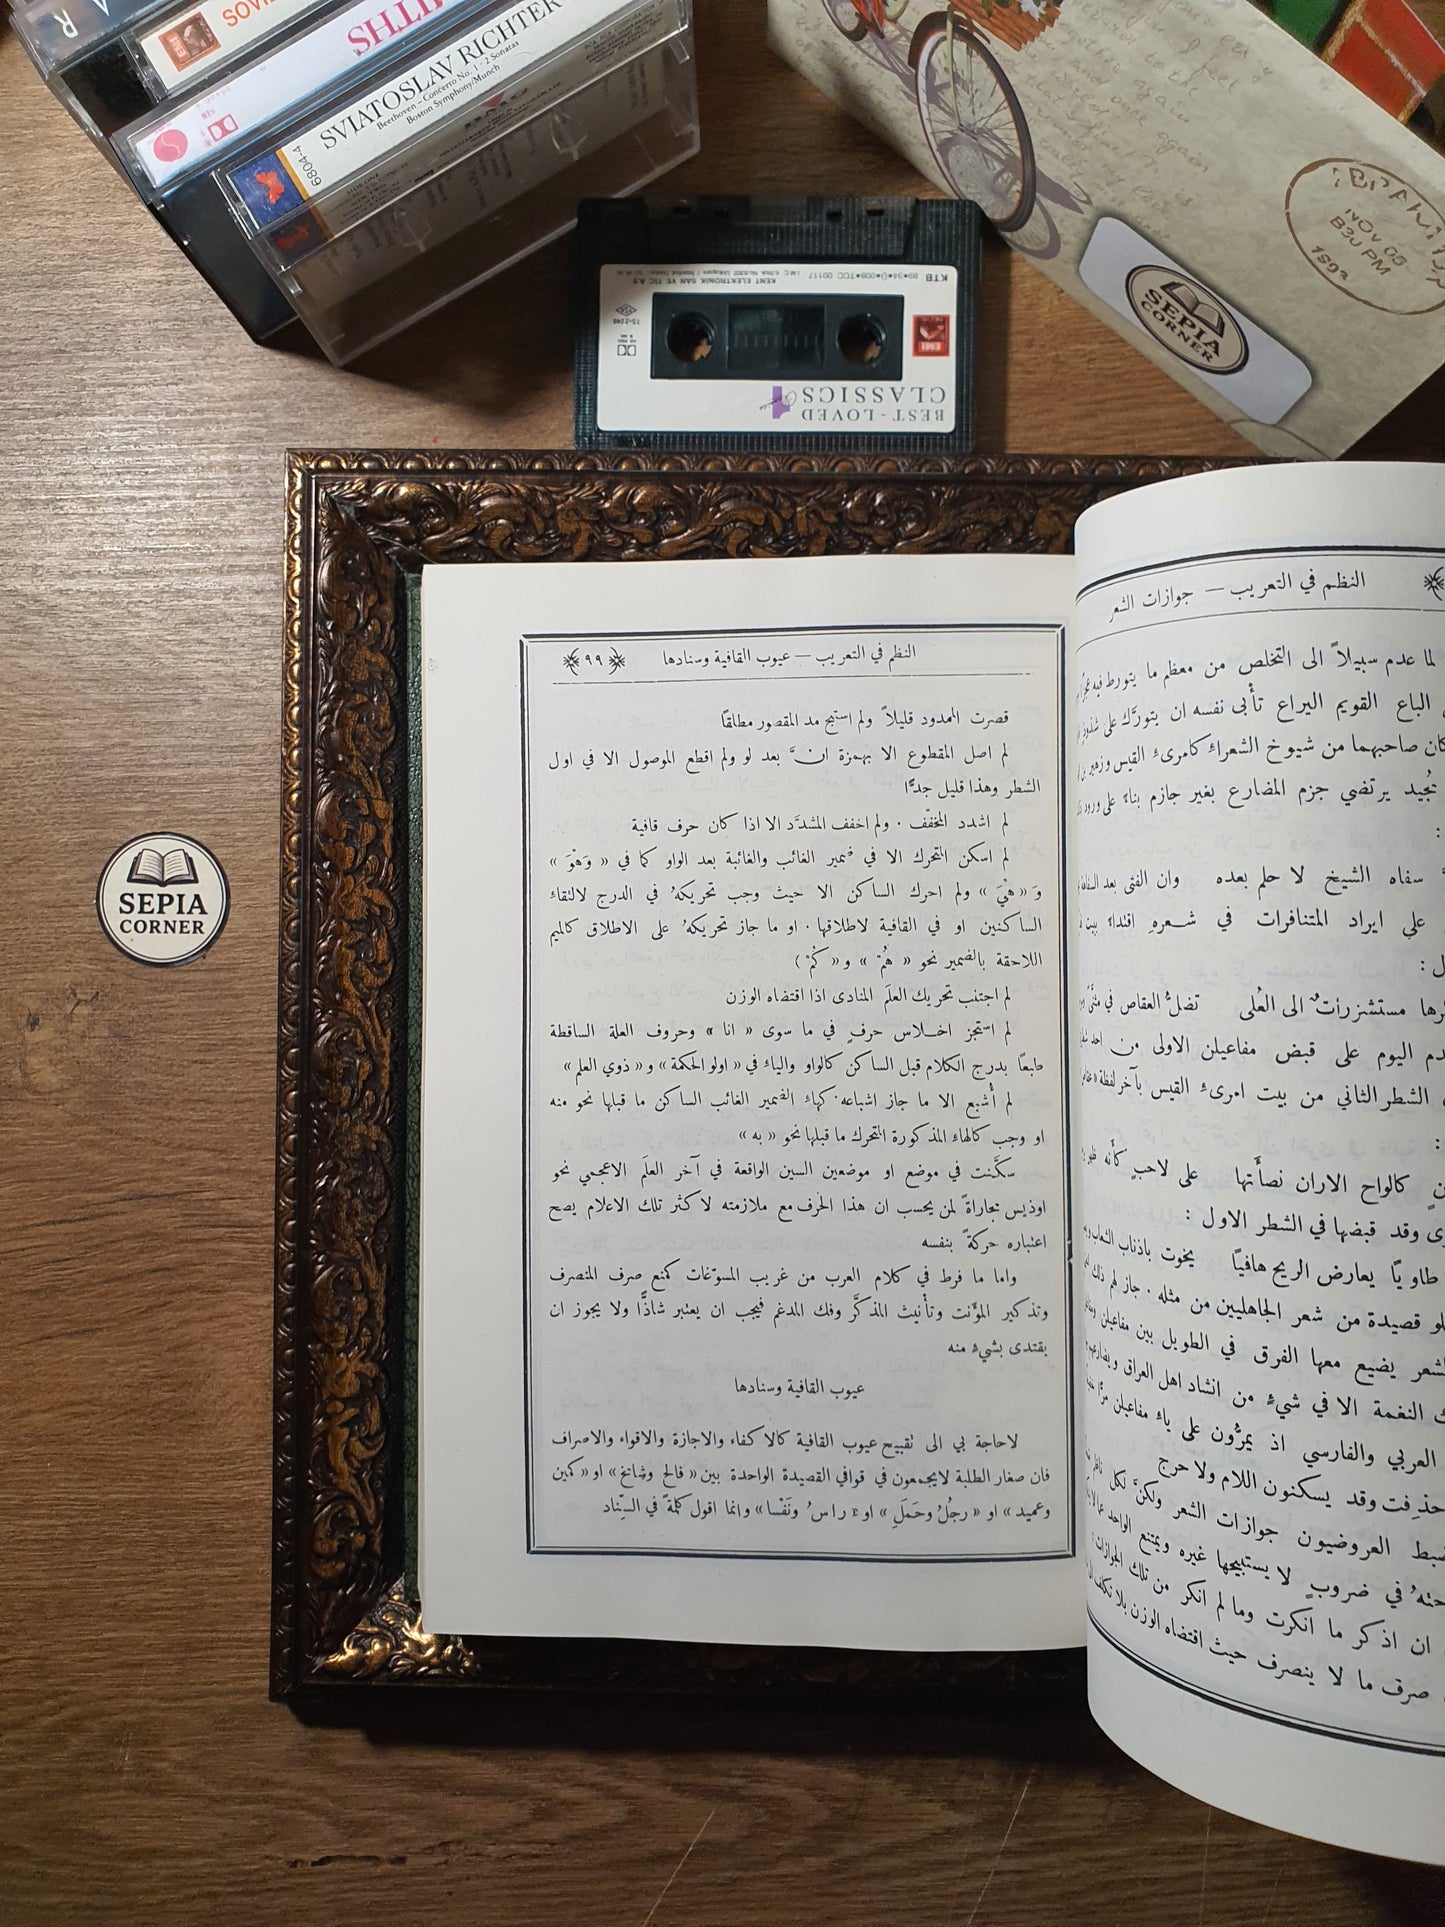 SOVIE
SVIATOSLAV RICHTER
Beethoven – Concerto No. 1 · 2 Sonatas
Boston Symphony/Munch
6804-4
KTB
EMI
BEST - LOVED
CLASSICS 4
KENT ELEKTRONİK SAN VE TİC A.Ş
TS-2248
NOV 05
B30 PM
1892
SEPIA
CORNER
SEPIA
CORNER
النظم في التعريب — جوازات الشعر
لما عدم سبيلاً الى التخلص من معظم ما يتورط فيه
الباع القويم اليراع تأبى نفسه ان يتورَّك على
كان صاحبهما من شيوخ الشعراء كامرىء القيس وزهير
يجيد يرتضي جزم المضارع بغير جازم بناءً على ورود
سفاه الشيخ لا حلم بعده وان الفتى بعد السفاهة
على ايراد المتنافرات في شعره اقتداءً ببيت
مستشزرات الى العُلى تضلُّ العقاص في مثنًى
اليوم على قبض مفاعيلن الاولى من احد
الشطر الثاني من بيت امرىء القيس بآخر لفظة
كالواح الاران نصأتها على لاحبٍ كأنه
وقد قبضها في الشطر الاول :
طاوياً يعارض الريح هافياً يخوت باذناب الشعاب
قصيدة من شعر الجاهليين من مثله . جاز لهم ذلك
يضيع معها الفرق في الطويل بين مفاعيلن
النغمة الا في شيءٍ من انشاد اهل العراق
العربي والفارسي اذ يمرُّون على ياء مفاعيلن
حذفت وقد يسكنون اللام ولا حرج
العروضيون جوازات الشعر ولكنَّ لكل
في ضروبٍ لا يستبيحها غيره ويمتنع الواحد
ان اذكر ما انكرت وما لم انكر من تلك الجوازات
صرف ما لا ينصرف حيث اقتضاه الوزن بلا تكلف
النظم في التعريب — عيوب القافية وسنادها
٩٩
قصرت الممدود قليلاً ولم استبح مد المقصور مطلقًا
لم اصل المقطوع الا بهمزة انَّ بعد لو ولم اقطع الموصول الا في اول
الشطر وهذا قليل جدًّا
لم اشدد المخفَّف . ولم اخفف المشدَّد الا اذا كان حرف قافية
لم اسكن المتحرك الا في ضمير الغائب والغائبة بعد الواو كما في « وَهْوَ »
وَ « هْيَ » ولم احرك الساكن الا حيث وجب تحريكهُ في الدرج لالتقاء
الساكنين او في القافية لاطلاقها . او ما جاز تحريكهُ على الاطلاق كالميم
اللاحقة بالضمير نحو « هُمْ » و « كُمْ )
لم اجتنب تحريك العلَم المنادى اذا اقتضاه الوزن
لم استجز اختلاس حرفٍ في ما سوى « انا » وحروف العلة الساقطة
طبعًا بدرج الكلام قبل الساكن كالواو والياء في « اولو الحكمة » و « ذوي العلم »
لم أُشبع الا ما جاز اشباعه كهاء الضمير الغائب الساكن ما قبلها نحو منه
او وجب كالهاء المذكورة المتحرك ما قبلها نحو « به »
سكَّنت في موضع او موضعين السين الواقعة في آخر العلَم الاعجمي نحو
اوذيس مجاراةً لمن يحسب ان هذا الحرف مع ملازمته لاكثر تلك الاعلام يصح
اعتباره حركةً بنفسه
واما ما فرط في كلام العرب من غريب المسوّغات كمنع صرف المنصرف
وتذكير المؤنت وتأنيث المذكَّر وفك المدغم فيجب ان يعتبر شاذًّا ولا يجوز ان
يقتدى بشيء منه
عيوب القافية وسنادها
لا حاجة بي الى تقبيح عيوب القافية كالاكفاء والاجازة والاقواء والاصراف
فان صغار الطلبة لا يجمعون في قوافي القصيدة الواحدة بين « فالح وشامخ » او « كمين
وعميد » او « رجلُ وحَمَلِ » او « راسُ ونَفْسا » وانما اقول كلمةً في السِّناد